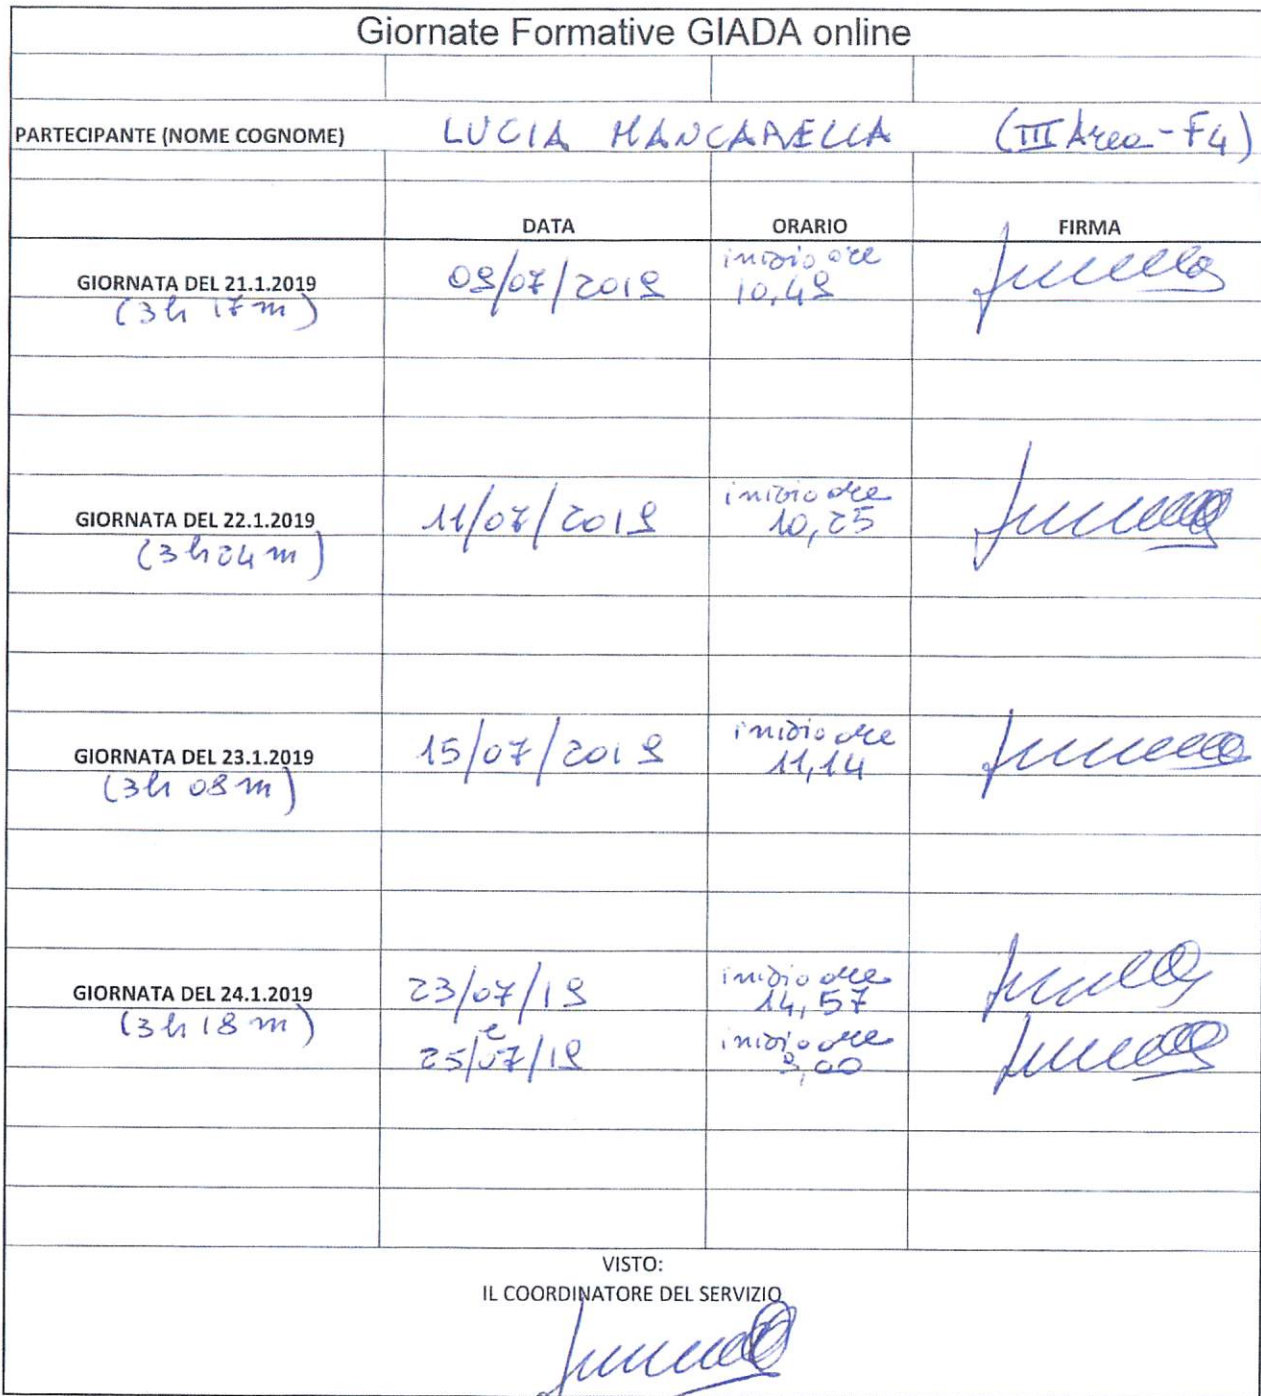 Giornate Formative GIADA online
PARTECIPANTE (NOME COGNOME) LUCIA MANCARELLA (III Area - F4)
DATA ORARIO FIRMA
GIORNATA DEL 21.1.2019 09/07/2019 inizio ore
(3h 17m) 10,49
GIORNATA DEL 22.1.2019 11/07/2019 inizio ore
(3h24m) 10,25
GIORNATA DEL 23.1.2019 15/07/2019 inizio ore
(3h 08m) 11,14
GIORNATA DEL 24.1.2019 23/07/19 inizio ore
(3h 18m) 14,57
e
25/07/19 inizio ore
9,00
VISTO:
IL COORDINATORE DEL SERVIZIO